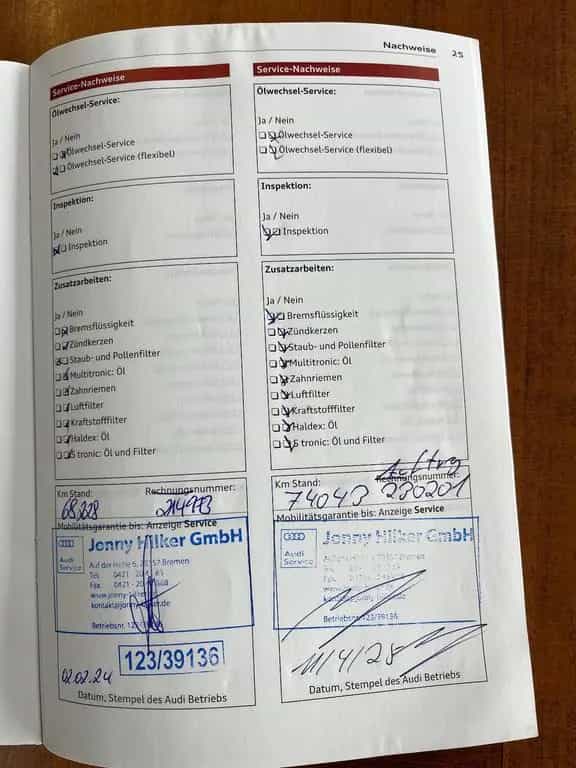 Nachweise 25
Service-Nachweise
Ölwechsel-Service:
Ja / Nein
Ölwechsel-Service
Ölwechsel-Service (flexibel)
Inspektion:
Ja / Nein
Inspektion
Zusatzarbeiten:
Ja / Nein
Bremsflüssigkeit
Zündkerzen
Staub- und Pollenfilter
Multitronic: Öl
Zahnriemen
Luftfilter
Kraftstofffilter
Haldex: Öl
S tronic: Öl und Filter
Km Stand: Rechnungsnummer:
68228
Mobilitätsgarantie bis: Anzeige Service
Audi Service
Jonny Hilker GmbH
Auf der Höhe 6, 28357 Bremen
Tel. 0421
Fax 0421
www.jonny-hilker
Betriebsnr. 123/39136
123/39136
02.02.24
Datum, Stempel des Audi Betriebs
Service-Nachweise
Ölwechsel-Service:
Ja / Nein
Ölwechsel-Service
Ölwechsel-Service (flexibel)
Inspektion:
Ja / Nein
Inspektion
Zusatzarbeiten:
Ja / Nein
Bremsflüssigkeit
Zündkerzen
Staub- und Pollenfilter
Multitronic: Öl
Zahnriemen
Luftfilter
Kraftstofffilter
Haldex: Öl
S tronic: Öl und Filter
Auftrag
Km Stand: Rechnungsnummer:
74043 230201
Mobilitätsgarantie bis: Anzeige Service
Audi Service
Jonny Hilker GmbH
Betriebsnr. 123/39136
11/4/25
Datum, Stempel des Audi Betriebs